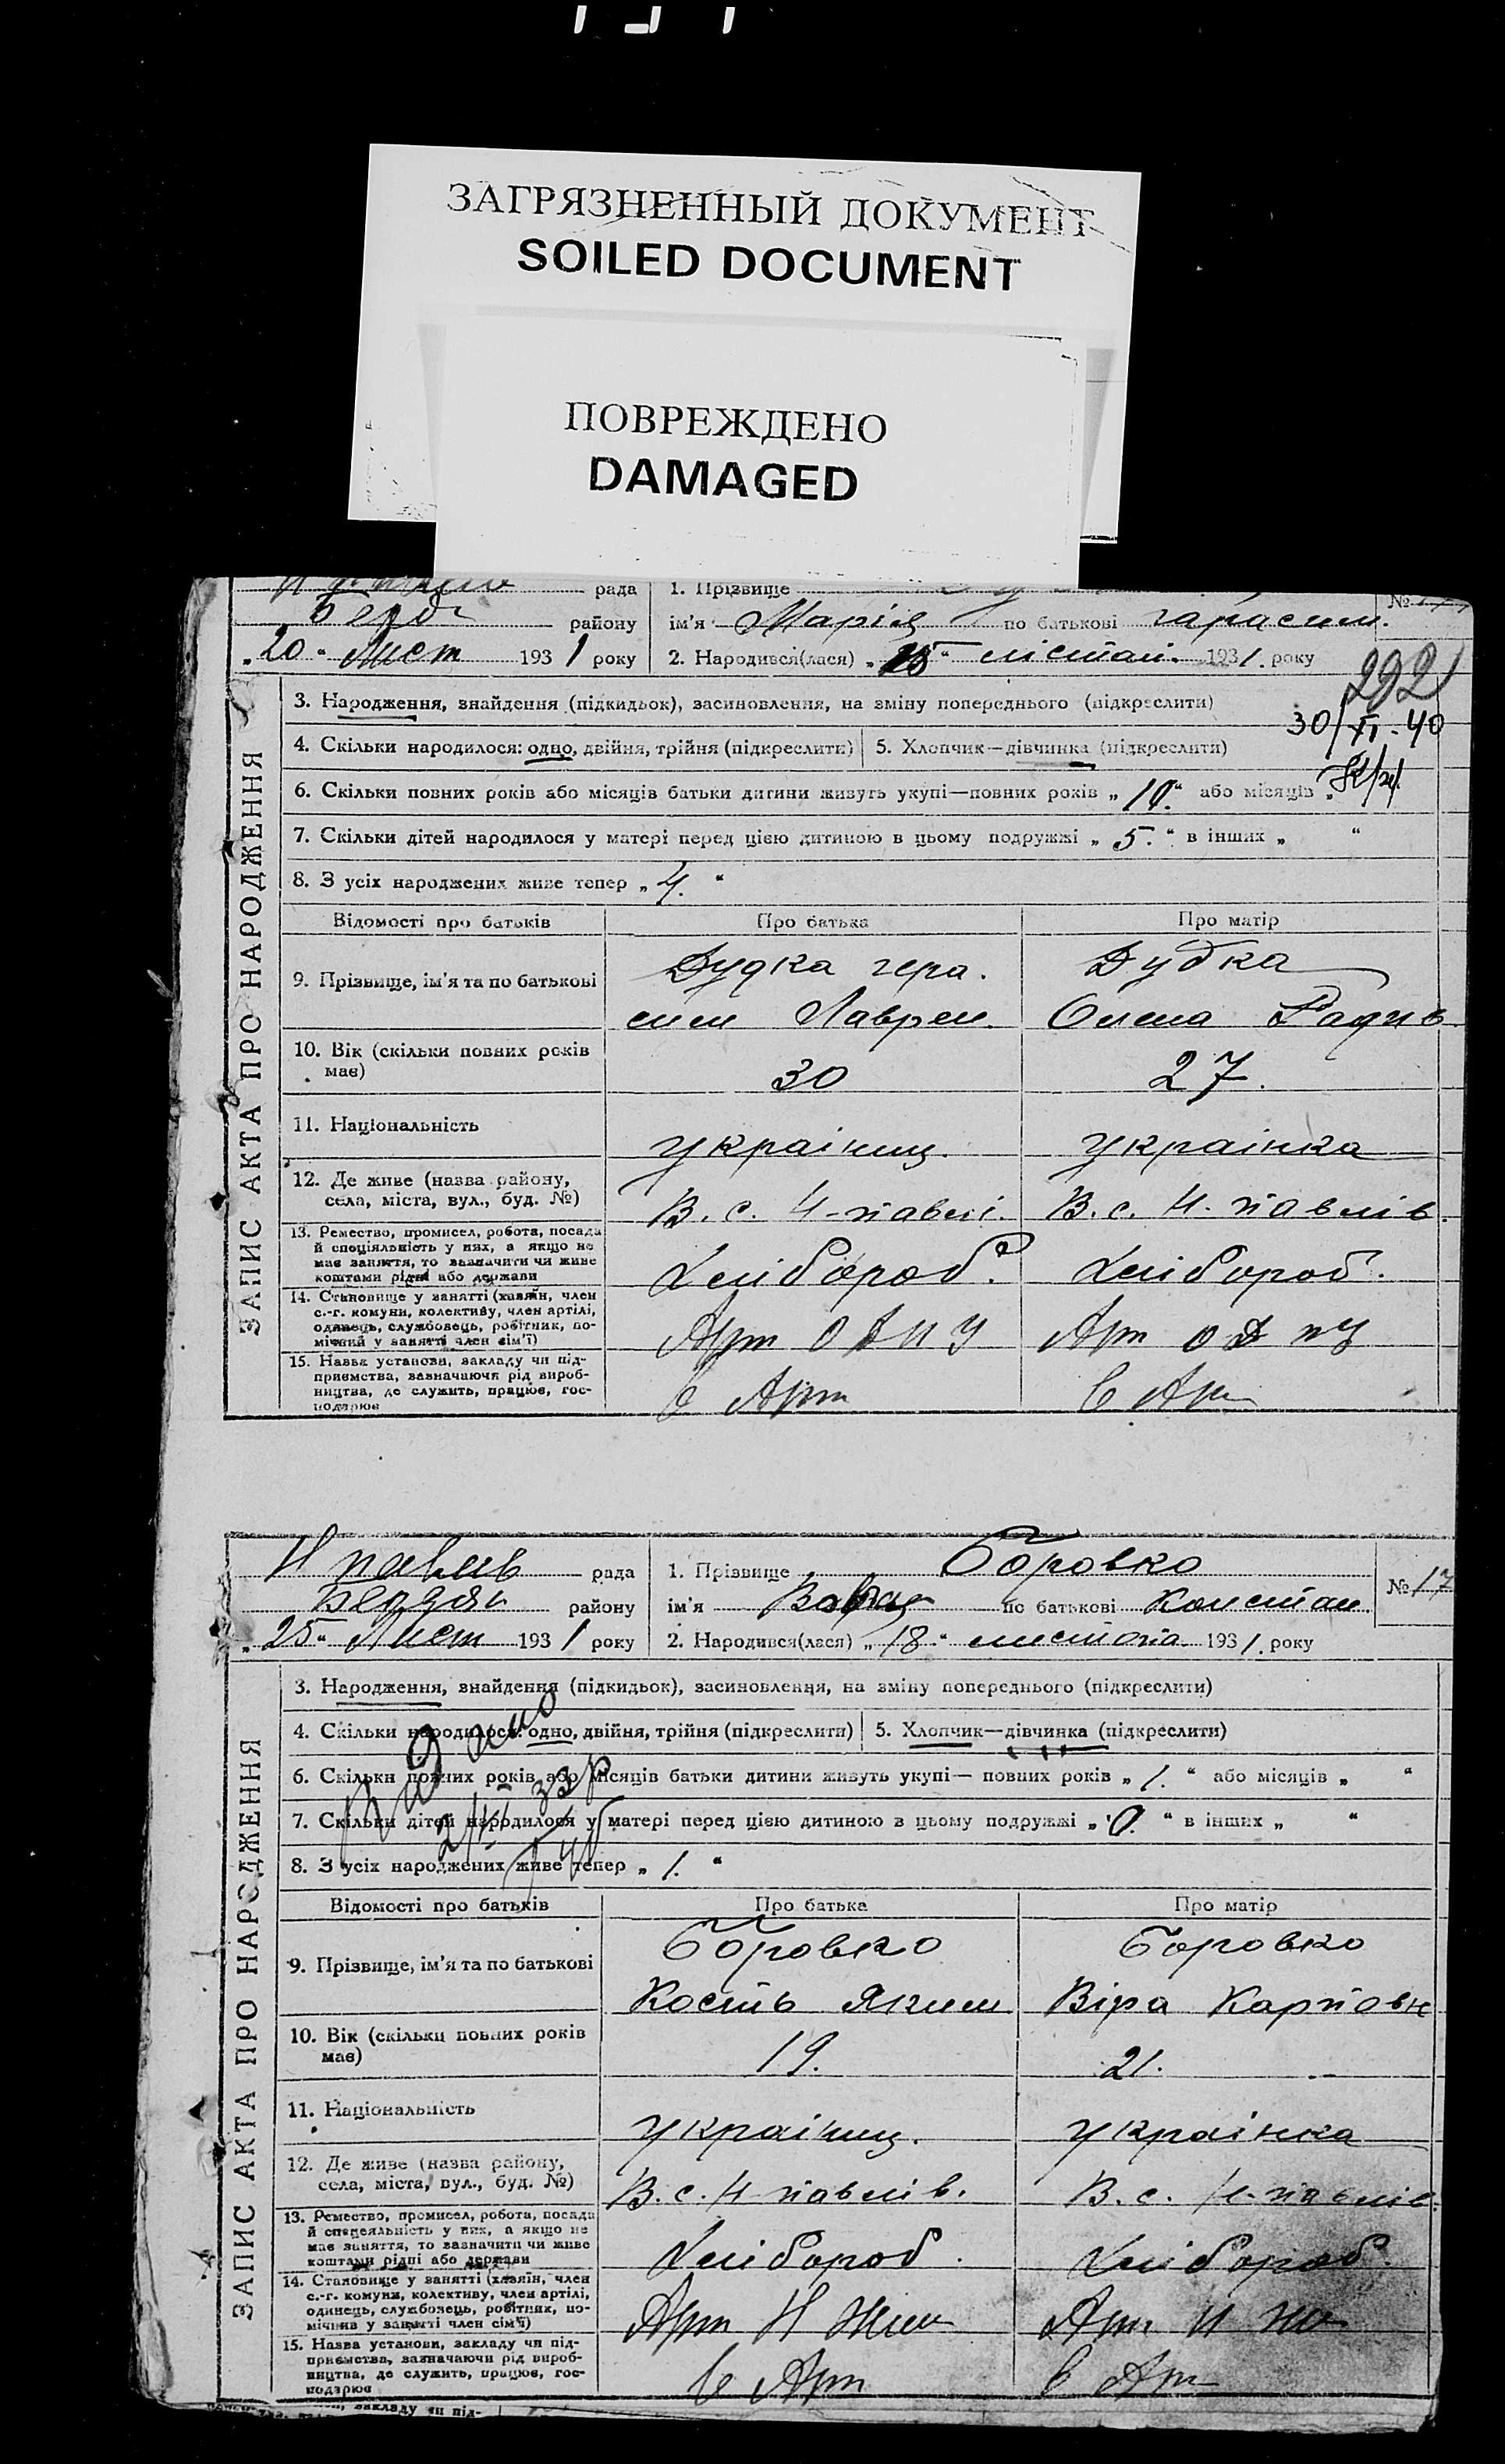 ЗАГРЯЗНЕННЫЙ ДОКУМЕНТ
SOILED DOCUMENT
ПОВРЕЖДЕНО
DAMAGED
рада 1. Прізвище
Берд району ім'я Марія по батькові Гарасим. №
„20“ Лист 1931 року 2. Народився(лася) „15“ лістап. 1931. року
292
3. Народження, знайдення (підкидьок), засиновлення, на зміну попереднього (підкреслити)
30/XI-40
4. Скільки народилося: одно, двійня, трійня (підкреслити) 5. Хлопчик—дівчинка (підкреслити)
6. Скільки повних років або місяців батьки дитини живуть укупі—повних років „10.“ або місяців „
7. Скільки дітей народилося у матері перед цією дитиною в цьому подружжі „5.“ в інших „ “
8. З усіх народжених живе тепер „4.“
ЗАПИС АКТА ПРО НАРОДЖЕННЯ
Відомості про батьків Про батька Про матір
9. Прізвище, ім'я та по батькові Дудка Гера. Дудка
сим Лаврен. Олена Радив
10. Вік (скільки повних років має) 30 27.
11. Національність українц. українка
12. Де живе (назва району, села, міста, вул., буд. №) В. с. Н-павлі. В. с. Н. павлів.
13. Ремество, промисел, робота, посада й спеціяльність у них, а якщо не має заняття, то зазначити чи живе коштами рідні або держави Хлібороб. Хлібороб.
14. Становище у занятті (хазяїн, член с.-г. комуни, колективу, член артілі, одинець, службовець, робітник, помічний у занятті член сім'ї) Арт ОДПУ Арт ОДПУ
15. Назва установи, закладу чи підприємства, зазначаючи рід виробництва, де служить, працює, господарює в Арт в Ар
Н павлів рада 1. Прізвище Боровко
Бердян району ім'я по батькові Констан. № 17
„25“ Лист 1931 року 2. Народився(лася) „18“ листопа 1931. року
3. Народження, знайдення (підкидьок), засиновлення, на зміну попереднього (підкреслити)
4. Скільки народилося: одно, двійня, трійня (підкреслити) 5. Хлопчик—дівчинка (підкреслити)
6. Скільки повних років або місяців батьки дитини живуть укупі— повних років „1.“ або місяців „ “
7. Скільки дітей народилося у матері перед цією дитиною в цьому подружжі „0.“ в інших „ “
8. З усіх народжених живе тепер „1.“
ЗАПИС АКТА ПРО НАРОДЖЕННЯ
Відомості про батьків Про батька Про матір
9. Прізвище, ім'я та по батькові Боровко Боровко
Кость Яким Віра Карповн
10. Вік (скільки повних років має) 19. 21.
11. Національність українц. українка
12. Де живе (назва району, села, міста, вул., буд. №) В. с. Н павлів. В. с. Н-павлів.
13. Ремество, промисел, робота, посада й спецеяльність у них, а якщо не має заняття, то зазначити чи живе коштами рідні або держави Хлібороб. Хлібороб.
14. Становище у занятті (хазяїн, член с.-г. комуни, колективу, член артілі, одинець, службовець, робітник, помічнив у занятті член сім'ї) Арт Н Жит Арт Н
15. Назва установи, закладу чи підприємства, зазначаючи рід виробництва, де служить, працює, господарює в Арт в Арт
закладу чи під-